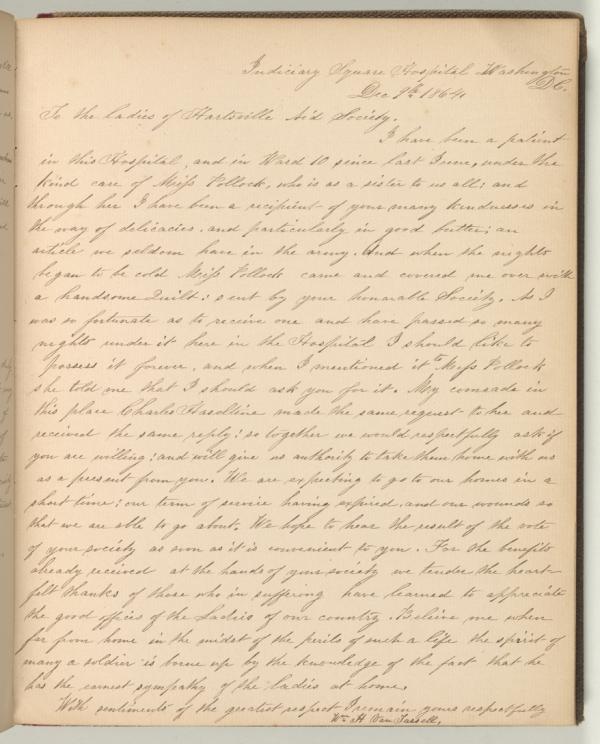 Judiciary Square Hospital Washington
D.C.
Dec 9th 1864.
To the ladies of Hartsville Aid Society.
I have been a patient
in this Hospital, and in Ward 10 since last June, under the
kind care of Miss Pollock, who is as a sister to us all; and
through her I have been a recipient of your many kindnesses in
the way of delicacies, and particularly in good butter; an
article we seldom have in the army. And when the nights
began to be cold Miss Pollock came and covered me over with
a handsome Quilt; sent by your honorable Society. As I
was so fortunate as to receive one and have passed so many
nights under it here in the Hospital I should like to
possess it forever, and when I mentioned it to Miss Pollock
she told me that I should ask you for it. My comrade in
this place Charles Haseltine made the same request to her and
received the same reply; so together we would respectfully ask if
you are willing; and will give us authority to take them home with us
as a present from you. We are expecting to go to our homes in a
short time; our term of service having expired, and our wounds so
that we are able to go about. We hope to hear the result of the vote
of your society as soon as it is convenient to you. For the benefits
already received at the hands of your society we tender the heart-
felt thanks of those who in suffering have learned to appreciate
the good offices of the Ladies of our country. Believe me when
far from home in the midst of the perils of such a life the spirit of
many a soldier is borne up by the knowledge of the fact that he
has the earnest sympathy of the ladies at home.
With sentiments of the greatest respect I remain yours respectfully
Wm H Van Tassell.